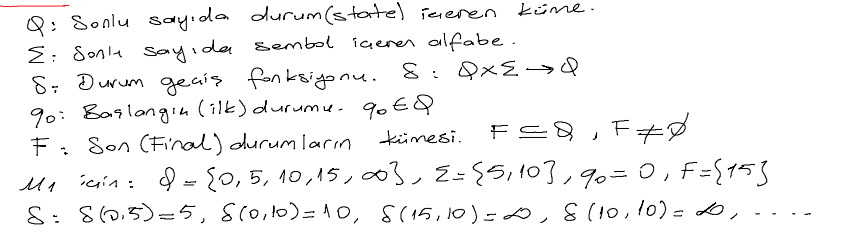 Q: Sonlu sayıda durum(state) içeren küme.
Σ: Sonlu sayıda sembol içeren alfabe.
δ: Durum geçiş fonksiyonu. δ: Q×Σ→Q
q₀: Başlangıç (ilk) durumu. q₀∈Q
F: Son (Final) durumların kümesi. F⊆Q, F≠∅
M₁ için: Q={0, 5, 10, 15, ∞}, Σ={5, 10}, q₀=0, F={15}
δ: δ(0,5)=5, δ(0,10)=10, δ(15,10)=∞, δ(10,10)=∞, ....